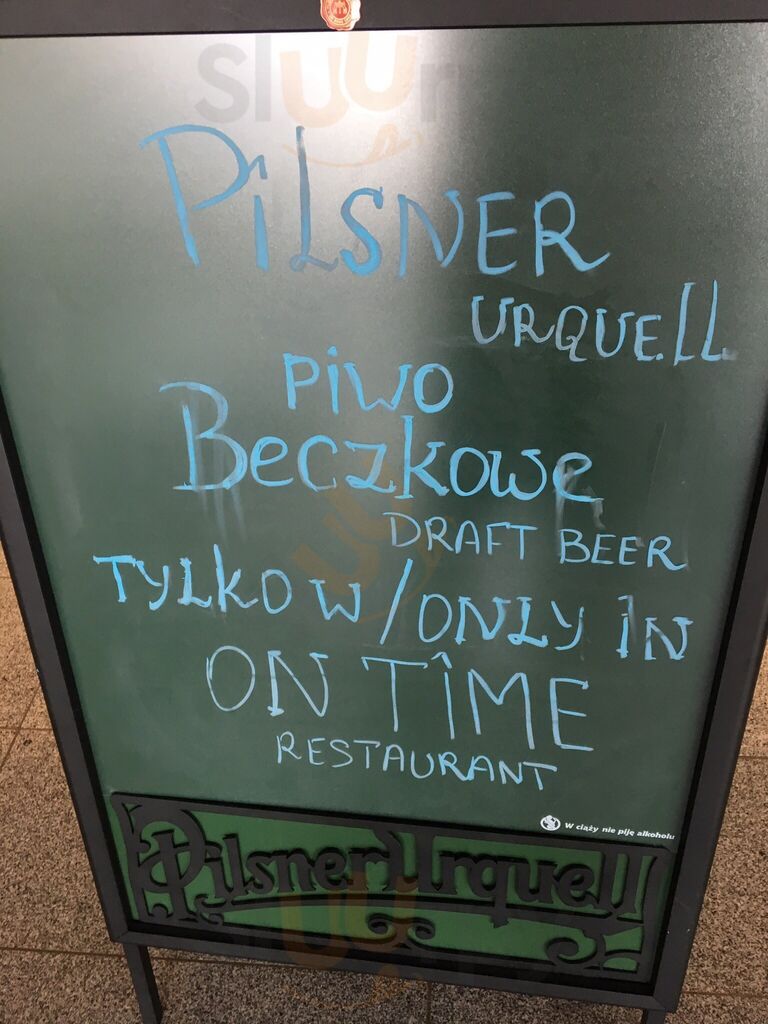 Sluurp
PiLSNER
URQUELL
PiWO
Beczkowe
DRAFT BEER
TYLKO W / ONLY IN
ON TIME
RESTAURANT
W ciąży nie piję alkoholu
Pilsner Urquell